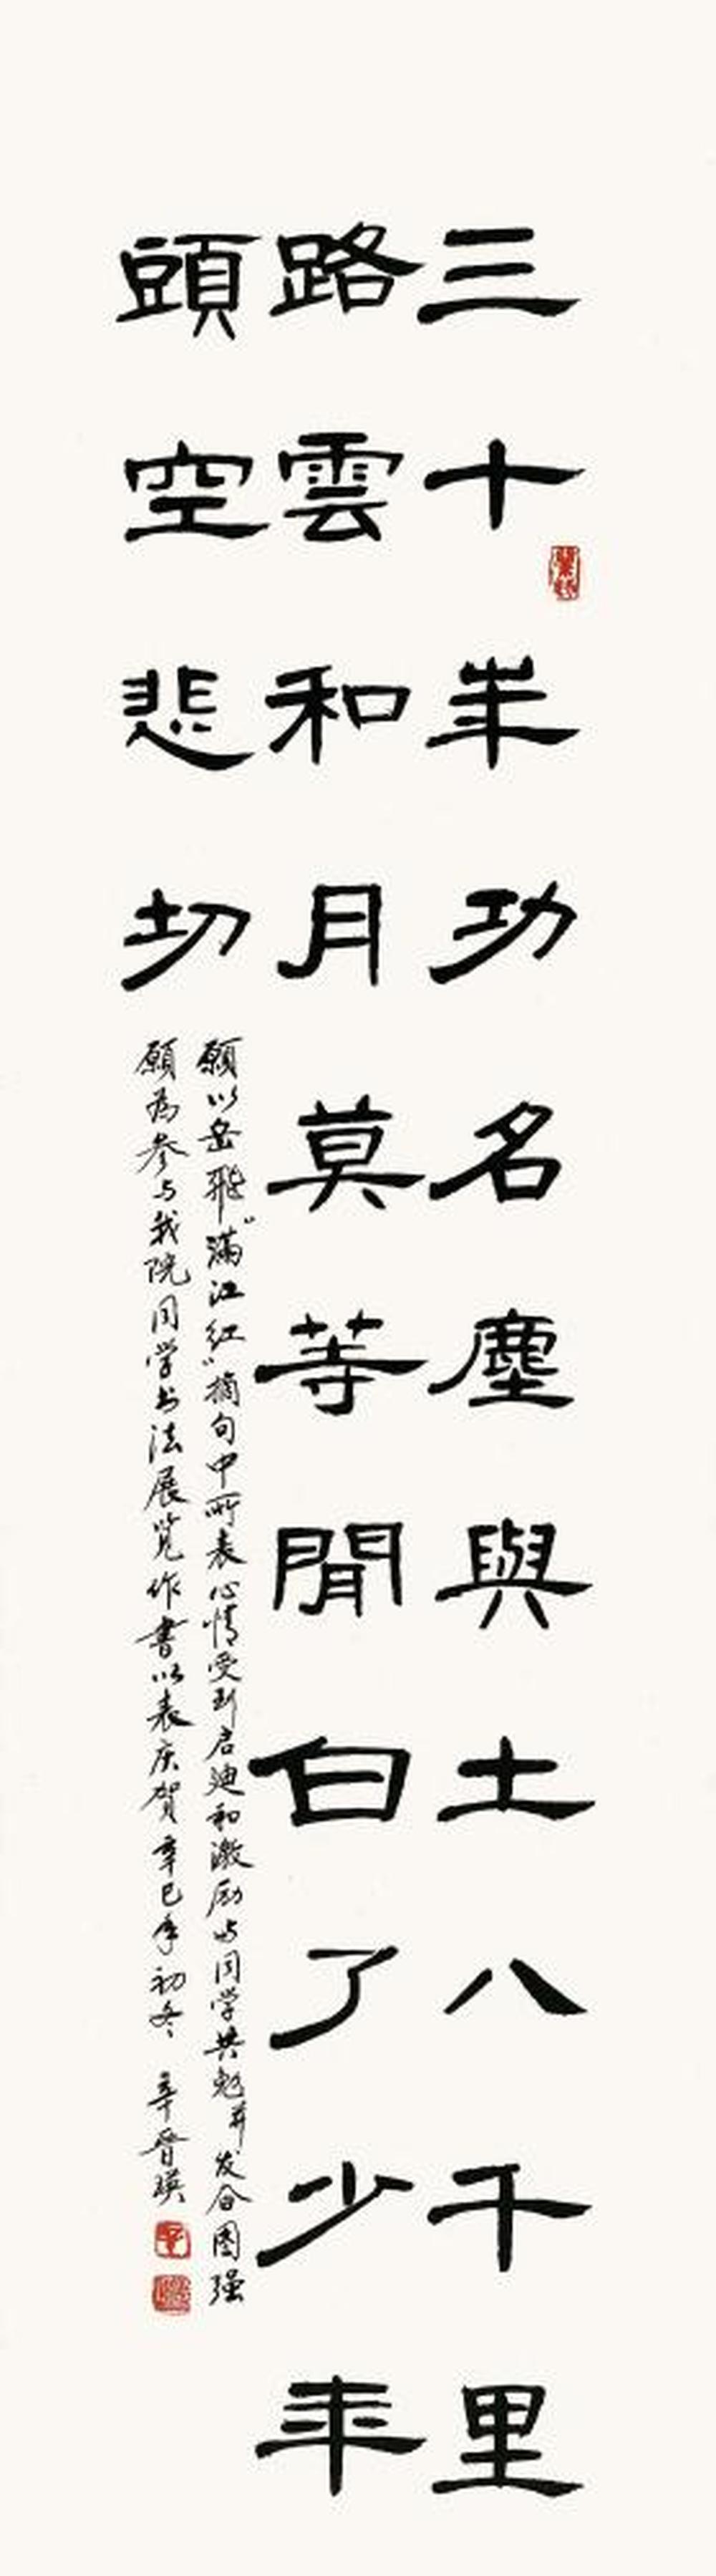 三十年功名塵與土八千里
路雲和月莫等閒白了少年
頭空悲切
願以岳飛“滿江红”摘句中所表心情受到启迪和激励与同学共勉并发奋圖强
願为参与我院同学书法展览作書以表庆贺辛巳年初冬 辛晋瑛